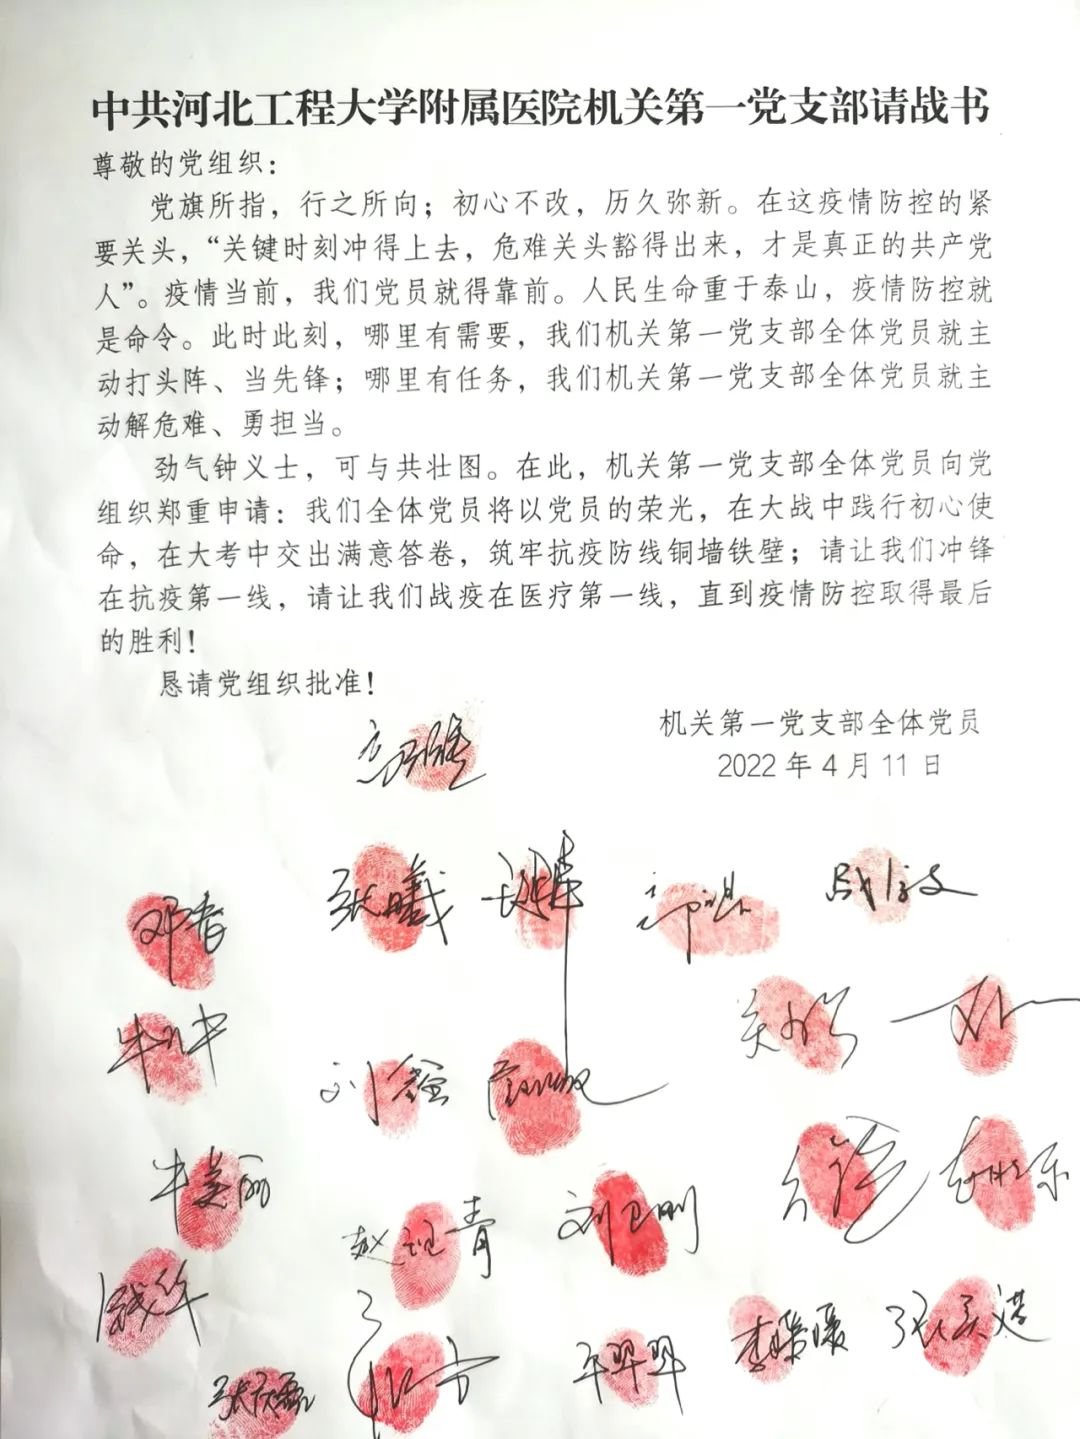 中共河北工程大学附属医院机关第一党支部请战书
尊敬的党组织：
党旗所指，行之所向；初心不改，历久弥新。在这疫情防控的紧
要关头，“关键时刻冲得上去，危难关头豁得出来，才是真正的共产党
人”。疫情当前，我们党员就得靠前。人民生命重于泰山，疫情防控就
是命令。此时此刻，哪里有需要，我们机关第一党支部全体党员就主
动打头阵、当先锋；哪里有任务，我们机关第一党支部全体党员就主
动解危难、勇担当。
劲气钟义士，可与共壮图。在此，机关第一党支部全体党员向党
组织郑重申请：我们全体党员将以党员的荣光，在大战中践行初心使
命，在大考中交出满意答卷，筑牢抗疫防线铜墙铁壁；请让我们冲锋
在抗疫第一线，请让我们战疫在医疗第一线，直到疫情防控取得最后
的胜利！
恳请党组织批准！
机关第一党支部全体党员
2022年4月11日
邓春 张曦
刘鑫
牛美丽
刘卫刚